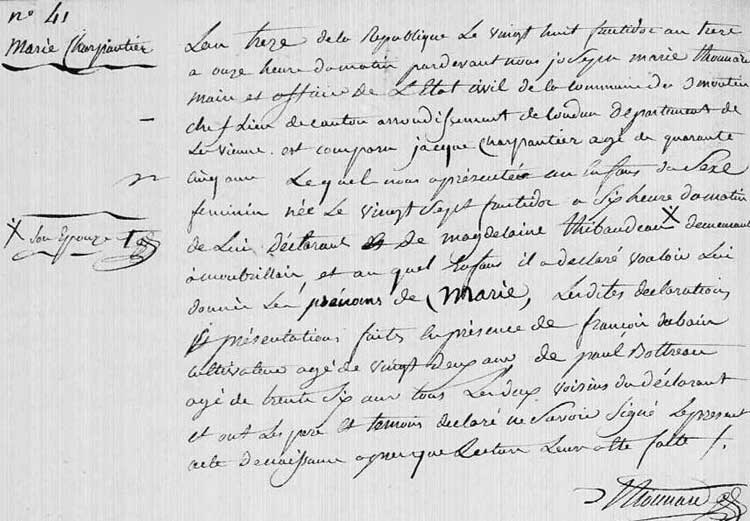 n° 41
Marie Charpantier
Lan treze de la Republique Le vingt huit fructidor an treze
a onze heure du matin pardevant nous joseph marie thonnard
maire et officier de L'Etat civil de la commune des 3 moutier
chef Lieu de canton arrondissement de Loudun Departement de
La vienne. est comparu jacque Charpantier agé de quarante
cinq ans Lequel nous a présentée un Enfans du Sexe
feminin née Le vingt Sept fructidor a Six heure du matin
de Lui Déclarant et de magdelaine thibaudeau X demeurant
X Son Epouze
a moutrillair et au quel Enfans il a déclaré vouloir Lui
donner Les prénoms de Marie, Lesdites déclarations
Et présentations faits En présence de françois dubain
cultivateur agé de vingt deux ans de paul Bottreau
agé de trente Six ans tous Les deux voisins du déclarant
et ont Les pere Et temoins declaré ne Savoir Signé Le present
acte de naissance apres que Lecture Leur a été faitte /.
Thonnard